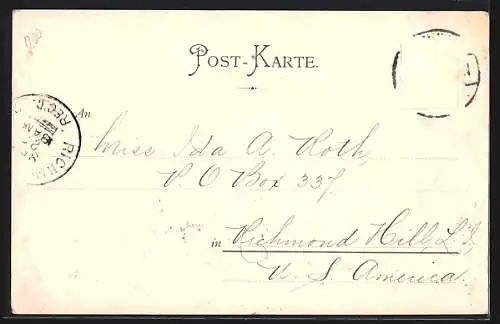 200
POST-KARTE.
An
Miss Ida A. Roth,
P. O Box 337
in Richmond Hill, L. I.
U. S. America.
RICHM
REC'D